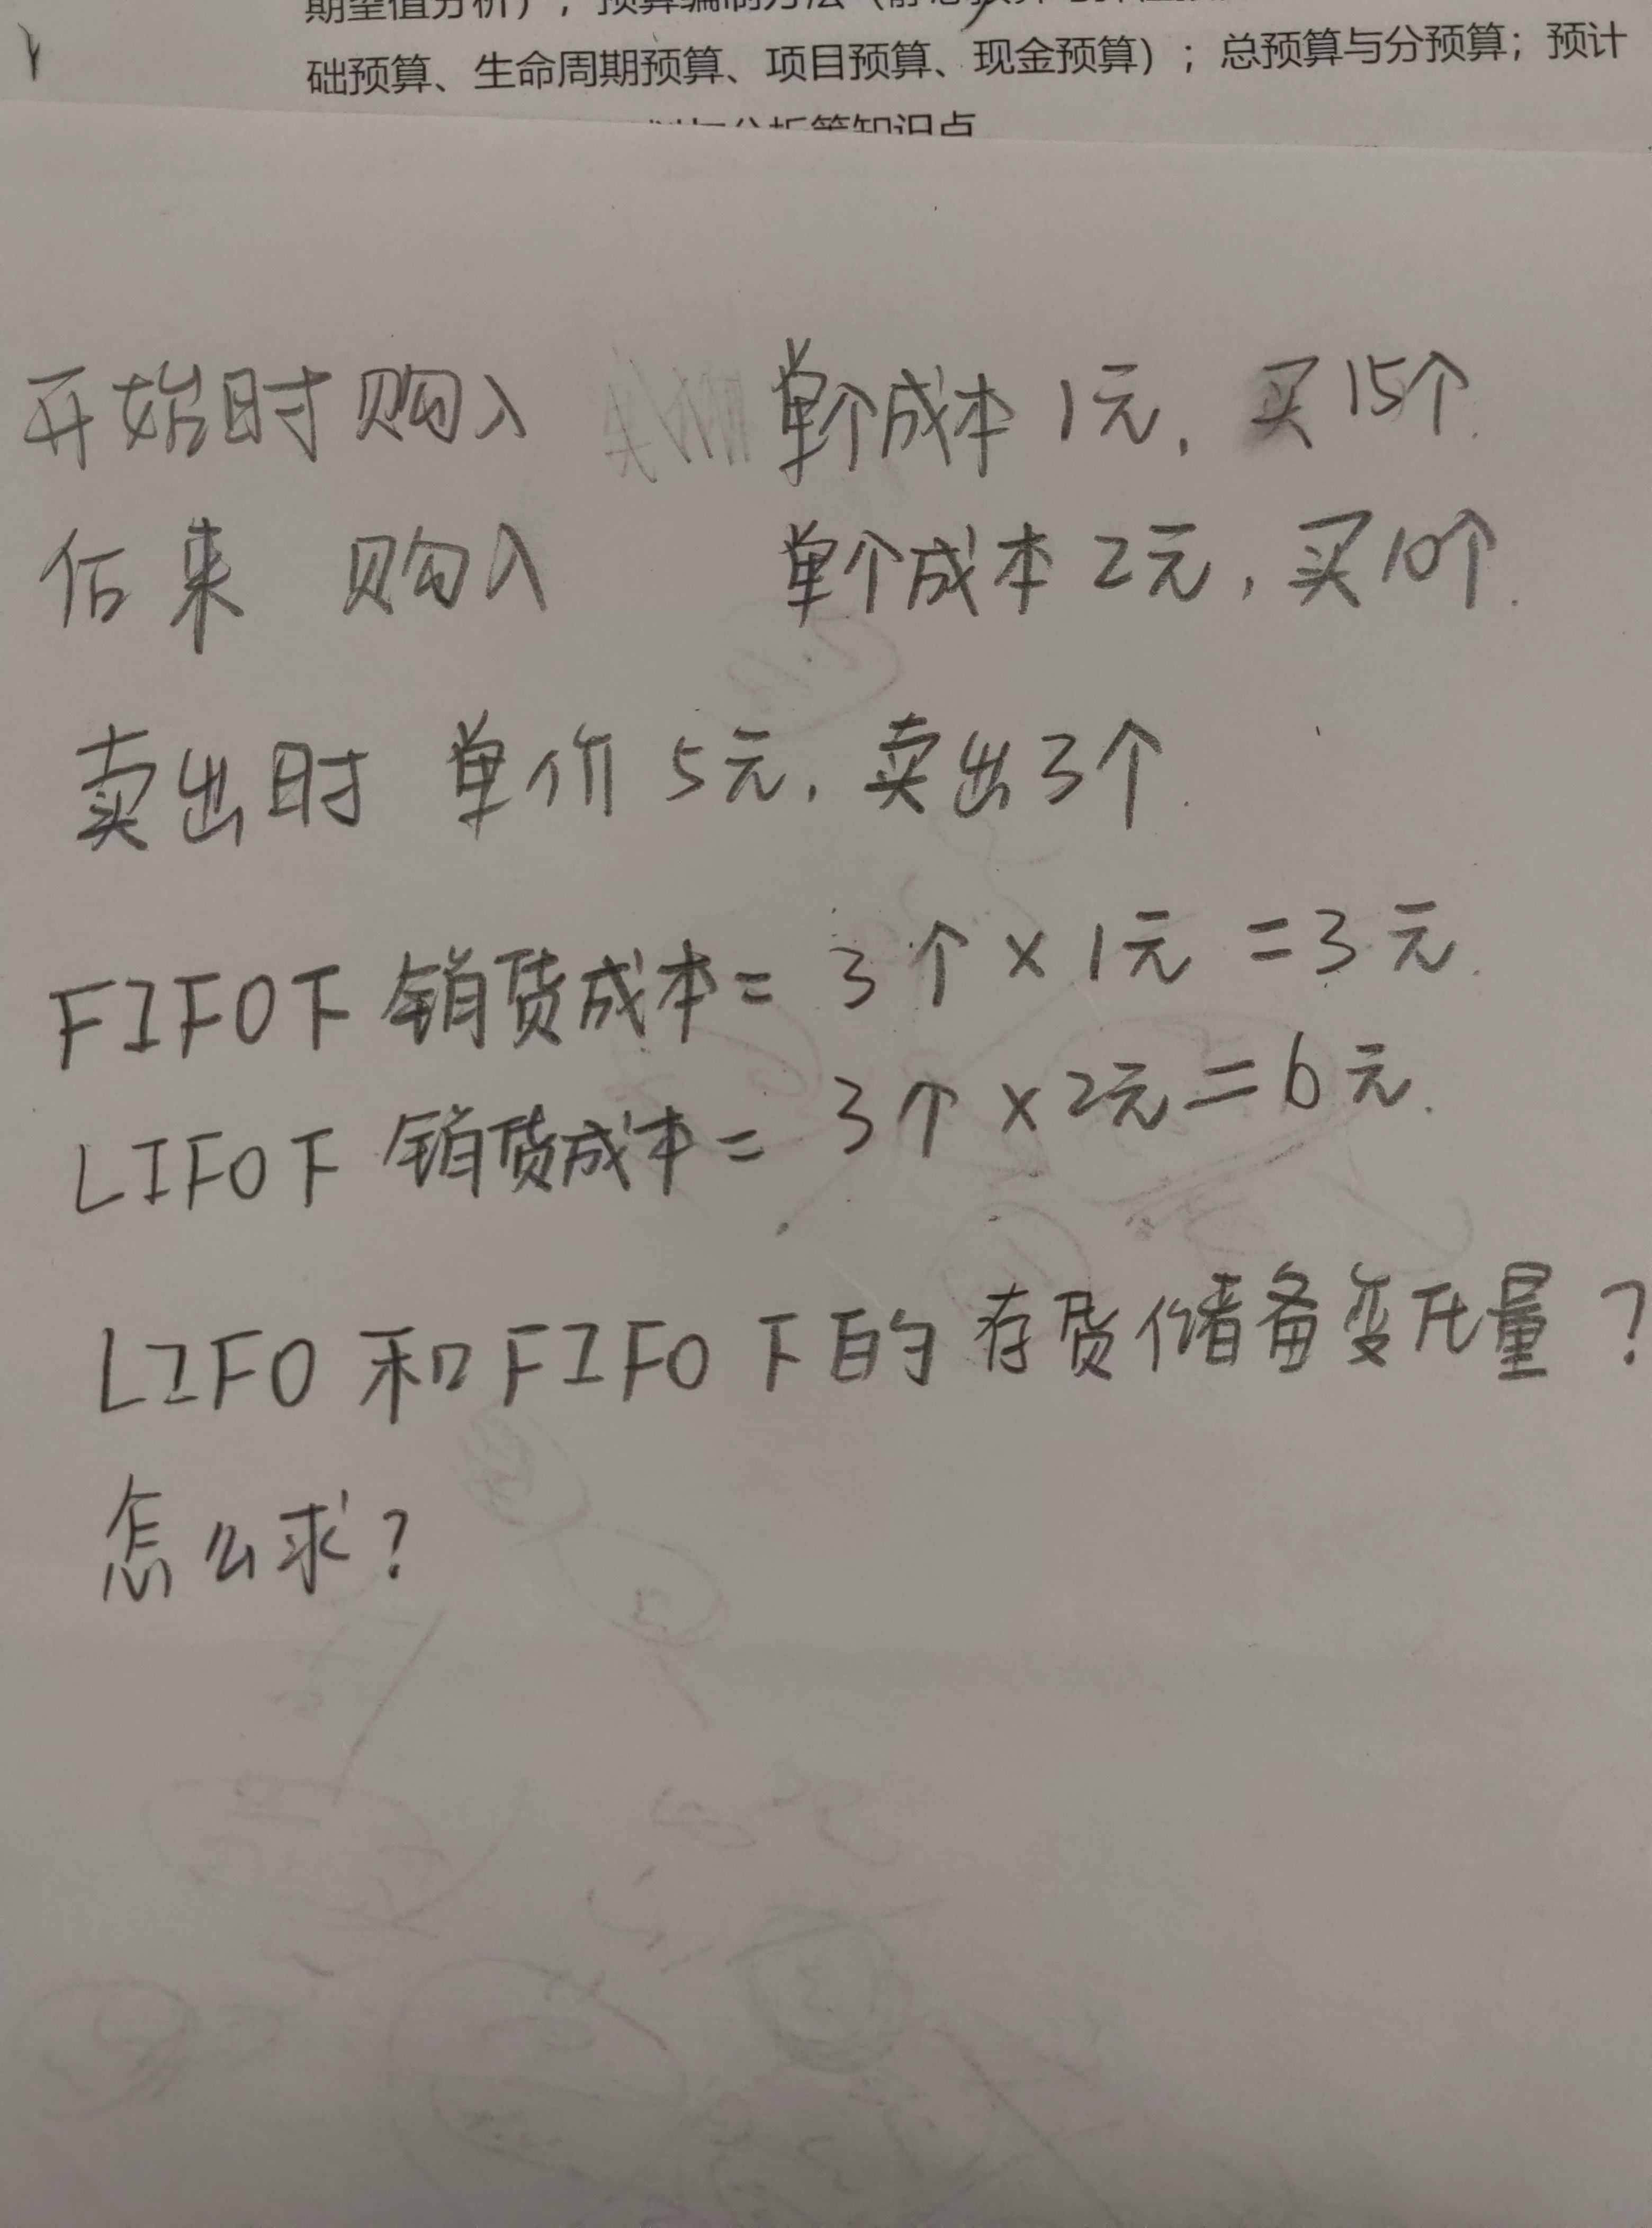 期望值分析），预算编制方法
础预算、生命周期预算、项目预算、现金预算）；总预算与分预算；预计
分析等知识点
开始时购入 单个成本1元，买15个.
后来 购入 单个成本2元，买10个.
卖出时 单价5元，卖出3个.
FIFO下销货成本= 3个×1元=3元.
LIFO下销货成本= 3个×2元=6元.
LIFO和FIFO下的存货储备变化量？
怎么求？